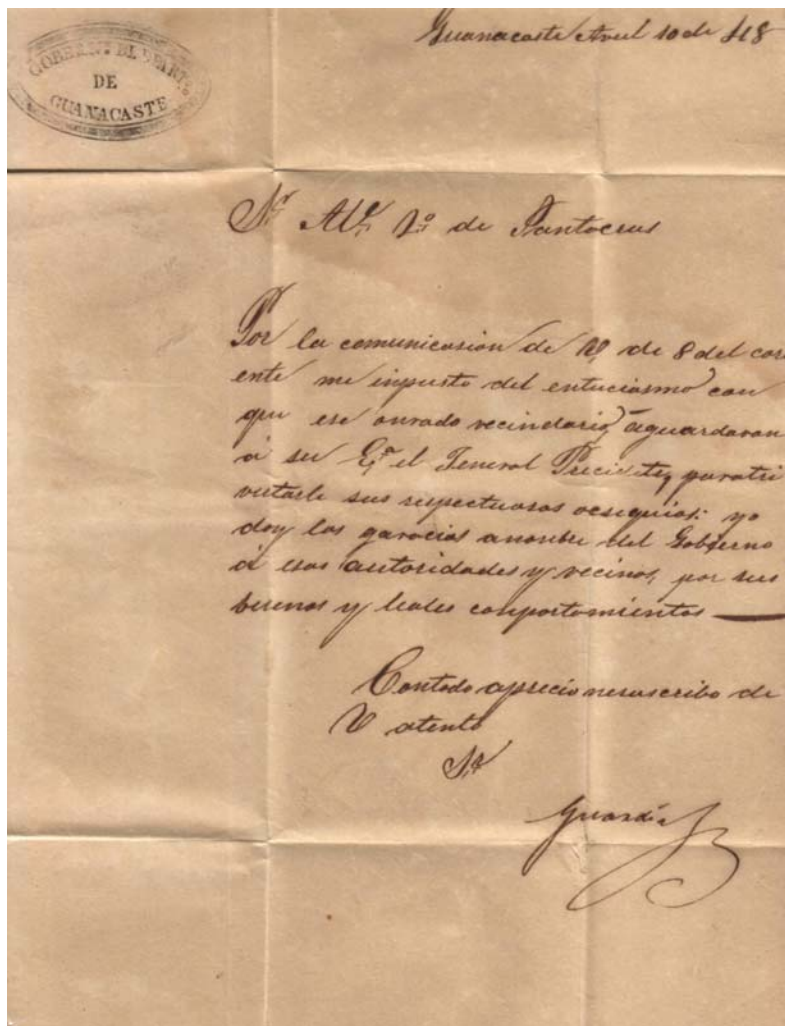 GOBERN.N DEL DEPART.O
DE
GUANACASTE
Guanacaste Avril 10 de
S.r Al.e 1.o de Santacrus
Por la comunicasion de V, de 8 del cor
ente me inpusto del entuciasmo con
que ese onrado vecindario, aguardaron
á su E.a el Jeneral Precidte, para tri
vutarle sus respectuosos osequios: yo
doy las garacias anonbre del Gobierno
á esas autoridades y vecinos, por sus
buenos y leales conportamientos
Contodo aprecio mesuscribo de
V atento
Guardia